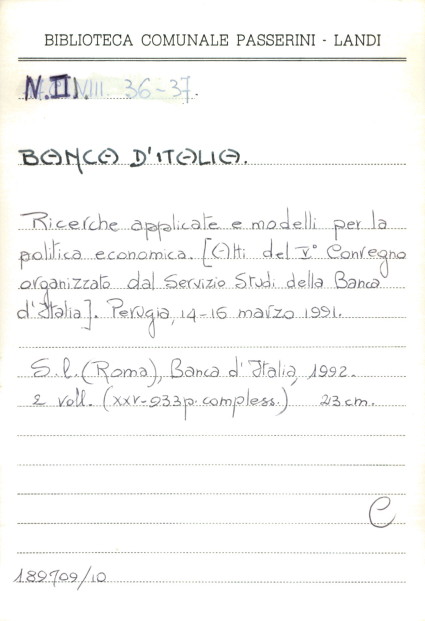 BIBLIOTECA COMUNALE PASSERINI - LANDI
N.II. VIII. 36-37.
BANCA D'ITALIA.
Ricerche applicate e modelli per la
politica economica. [Atti del V° Convegno
organizzato dal Servizio Studi della Banca
d'Italia]. Perugia, 14-15 marzo 1991.
S.l. (Roma), Banca d'Italia, 1992.
2 voll. (xxv-933p. compless.) 23 cm.
C
189709/10